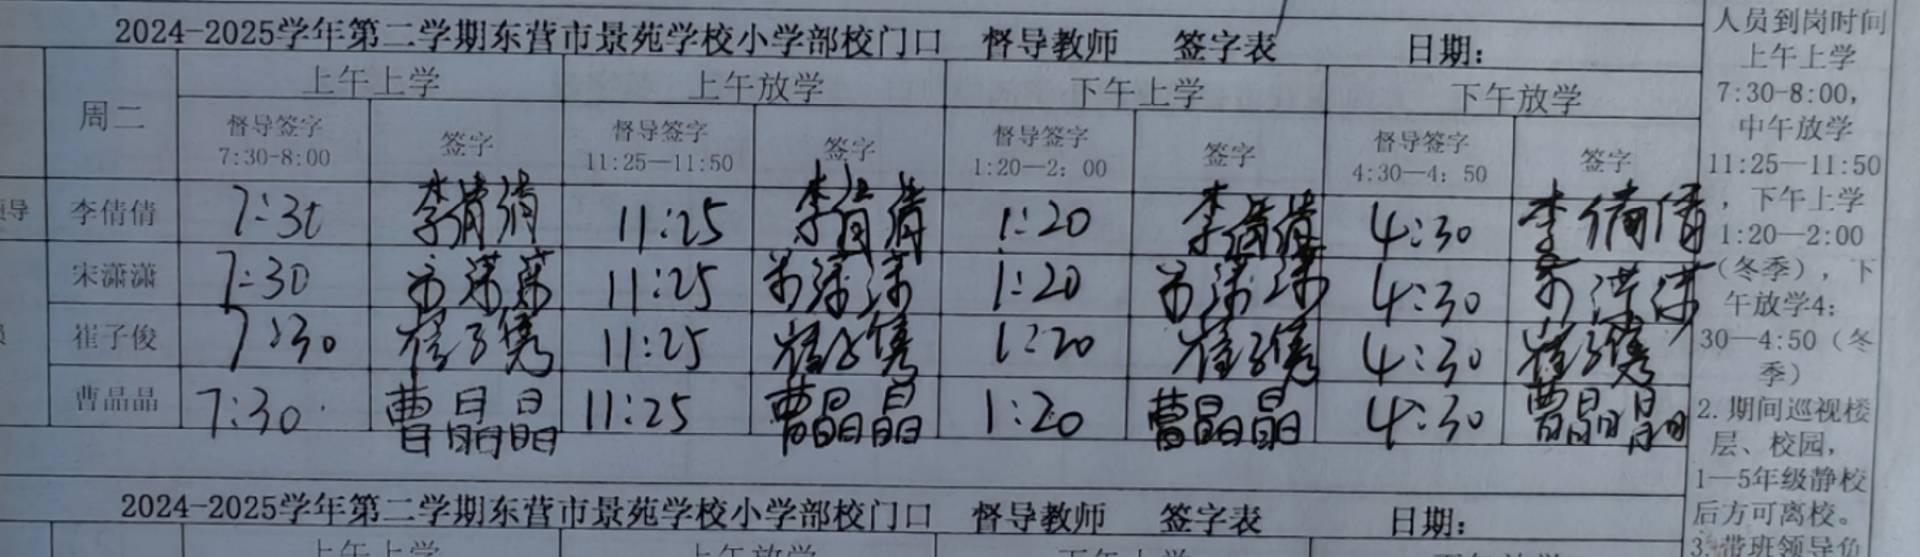 2024-2025学年第二学期东营市景苑学校小学部校门口 督导教师 签字表 日期:
周二 上午上学 上午放学 下午上学 下午放学
督导签字 签字 督导签字 签字 督导签字 签字 督导签字 签字
7:30-8:00 11:25—11:50 1:20—2: 00 4:30—4: 50
导 李倩倩 7:30 李倩倩 11:25 李倩倩 1:20 李倩倩 4:30 李倩倩
宋潇潇 7:30 宋潇潇 11:25 宋潇潇 1:20 宋潇潇 4:30 宋潇潇
员 崔子俊 7:30 崔子隽 11:25 崔子隽 1:20 崔子隽 4:30 崔子隽
曹晶晶 7:30 曹晶晶 11:25 曹晶晶 1:20 曹晶晶 4:30 曹晶晶
2024-2025学年第二学期东营市景苑学校小学部校门口 督导教师 签字表 日期:
上午上学 上午放学 下午上学 下午放学
人员到岗时间
上午上学
7:30-8:00,
中午放学
11:25—11:50
, 下午上学
1:20—2:00
(冬季), 下
午放学4:
30—4:50 (冬
季)
2. 期间巡视楼
层、校园,
1—5年级静校
后方可离校。
3. 带班领导负